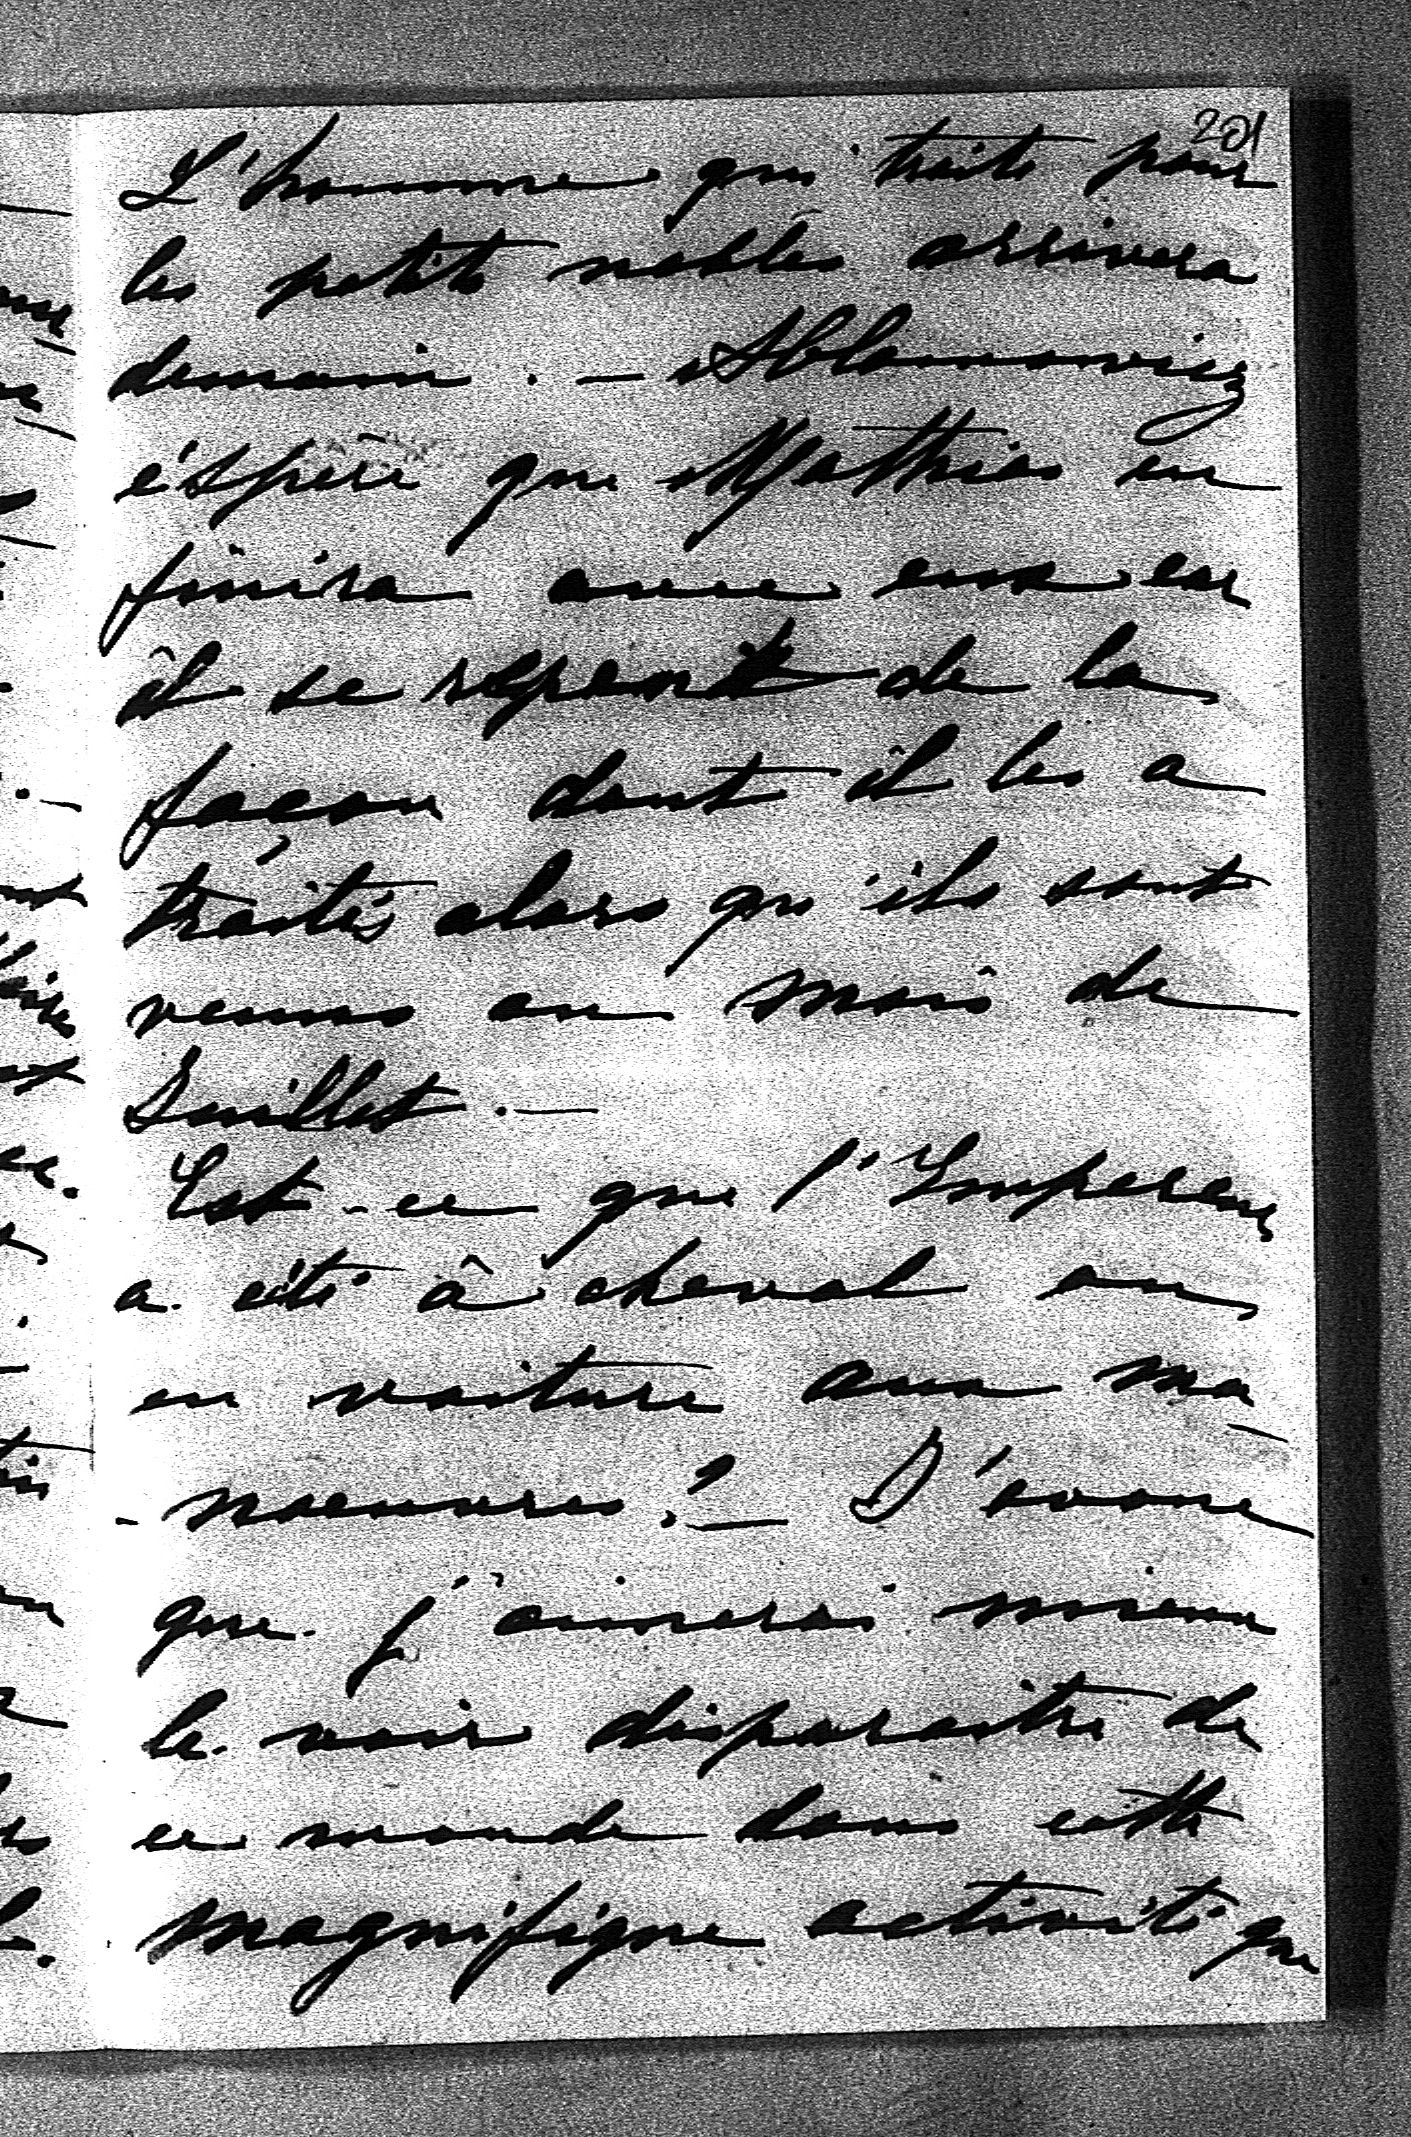 201
L'homme qui traite pour
les petits nobles arrivera
demain. — Ablamowicz
éspère que Mathias en
finira avec eux car
il se repent de la
façon dont il les a
traités alors qu'ils sont
venus au mois de
Juillet. —
Est-ce que l'Empereur
a été à cheval ou
en voiture aux ma-
-noeuvres? — J'avoue
que j'aimerai mieux
le voir disparaitre de
ce monde dans cette
magnifique activité que